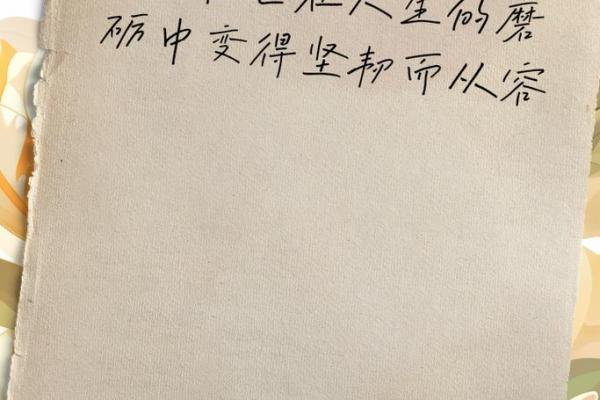 在人生的磨
砺中变得坚韧而从容